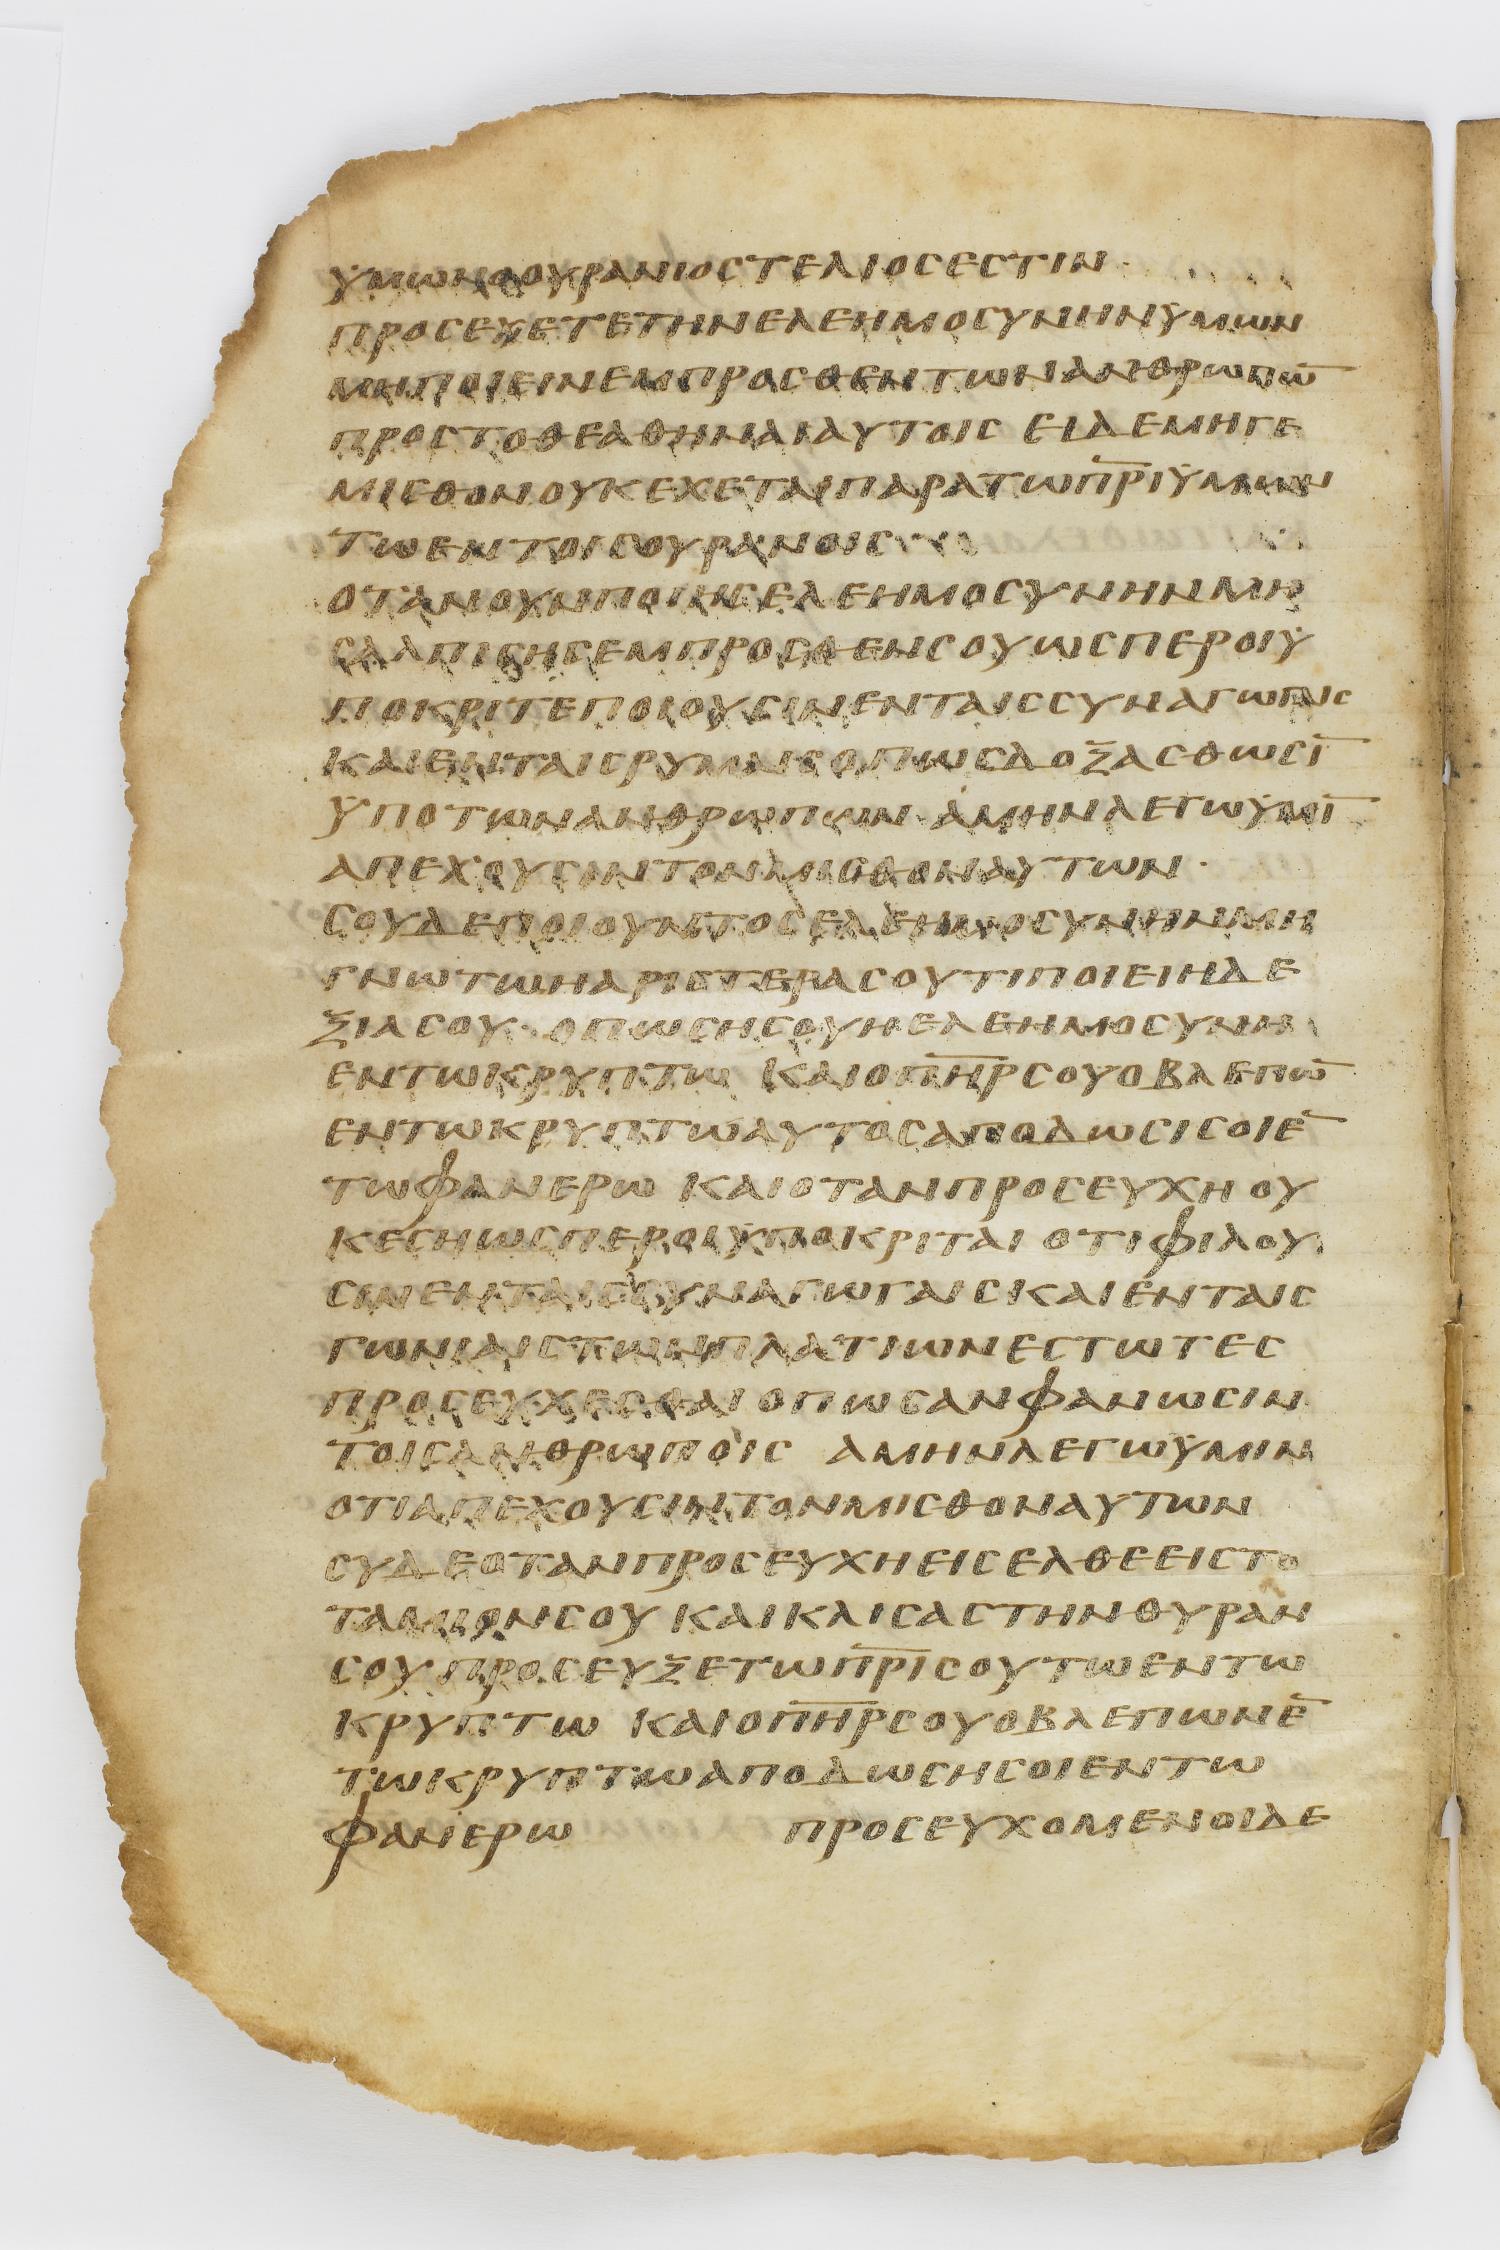 ΫΜωΝΟΟΥΡΑΝΙΟCΤΕΛΙΟCΕCΤΙΝ·
ΠΡΟCΕΧΕΤΕΤΗΝΕΛΕΗΜΟCΥΝΗΝΫΜωΝ
ΜΗΠΟΙΕΙΝΕΜΠΡΟCΘΕΝΤωΝΑΝΘΡωΠω̅
ΠΡΟCΤΟΘΕΑΘΗΝΑΙΑΥΤΟΙC ΕΙΔΕΜΗΓΕ
ΜΙCΘΟΝΟΥΚΕΧΕΤΑΙΠΑΡΑΤωΠ̅Ρ̅Ι̅ΫΜωΝ
ΤωΕΝΤΟΙCΟΥΡΑΝΟΙC
ΟΤΑΝΟΥΝΠΟΙΗCΕΛΕΗΜΟCΥΝΗΝΜΗ
CΑΛΠΙCΗCΕΜΠΡΟCΘΕΝCΟΥωCΠΕΡΟΙΫ
ΠΟΚΡΙΤΕΠΟΙΟΥCΙΝΕΝΤΑΙCCΥΝΑΓωΓΑΙC
ΚΑΙΕΝΤΑΙCΡΥΜΑΙCΟΠωCΔΟΞΑCΘωCΙ̅
ΫΠΟΤωΝΑΝΘΡωΠωΝ· ΑΜΗΝΛΕΓωΫΜΙ̅
ΑΠΕΧΟΥCΙΝΤΟΝΜΙCΘΟΝΑΥΤωΝ·
CΟΥΔΕΠΟΙΟΥΝΤΟCΕΛΕΗΜΟCΥΝΗΝΜΗ
ΓΝωΤωΗΑΡΙCΤΕΡΑCΟΥΤΙΠΟΙΕΙΗΔΕ
ΞΙΑCΟΥ· ΟΠωCΗCΟΥΗΕΛΕΗΜΟCΥΝΗ
ΕΝΤωΚΡΥΠΤω ΚΑΙΟΠ̅Η̅Ρ̅CΟΥΟΒΛΕΠω̅
ΕΝΤωΚΡΥΠΤωΑΥΤΟCΑΠΟΔωCΙCΟΙΕ̅
ΤωΦΑΝΕΡω ΚΑΙΟΤΑΝΠΡΟCΕΥΧΗΟΥ
ΚΕCΗωCΠΕΡΟΙΫΠΟΚΡΙΤΑΙΟΤΙΦΙΛΟΥ
CΙΝΕΝΤΑΙCCΥΝΑΓωΓΑΙCΚΑΙΕΝΤΑΙC
ΓωΝΙΑΙCΤωΝΠΛΑΤΙωΝΕCΤωΤΕC
ΠΡΟCΕΥΧΕCΘΑΙΟΠωCΑΝΦΑΝωCΙΝ
ΤΟΙCΑΝΘΡωΠΟΙC ΑΜΗΝΛΕΓωΫΜΙΝ
ΟΤΙΑΠΕΧΟΥCΙΝΤΟΝΜΙCΘΟΝΑΥΤωΝ
CΥΔΕΟΤΑΝΠΡΟCΕΥΧΗΕΙCΕΛΘΕΕΙCΤΟ
ΤΑΜΙΟΝCΟΥ ΚΑΙΚΛΙCΑCΤΗΝΘΥΡΑΝ
CΟΥΠΡΟCΕΥΞΕΤωΠ̅Ρ̅Ι̅CΟΥΤωΕΝΤω
ΚΡΥΠΤω ΚΑΙΟΠ̅Η̅Ρ̅CΟΥΟΒΛΕΠωΝΕ̅
ΤωΚΡΥΠΤωΑΠΟΔωCΗCΟΙΕΝΤω
ΦΑΝΕΡω ΠΡΟCΕΥΧΟΜΕΝΟΙΔΕ